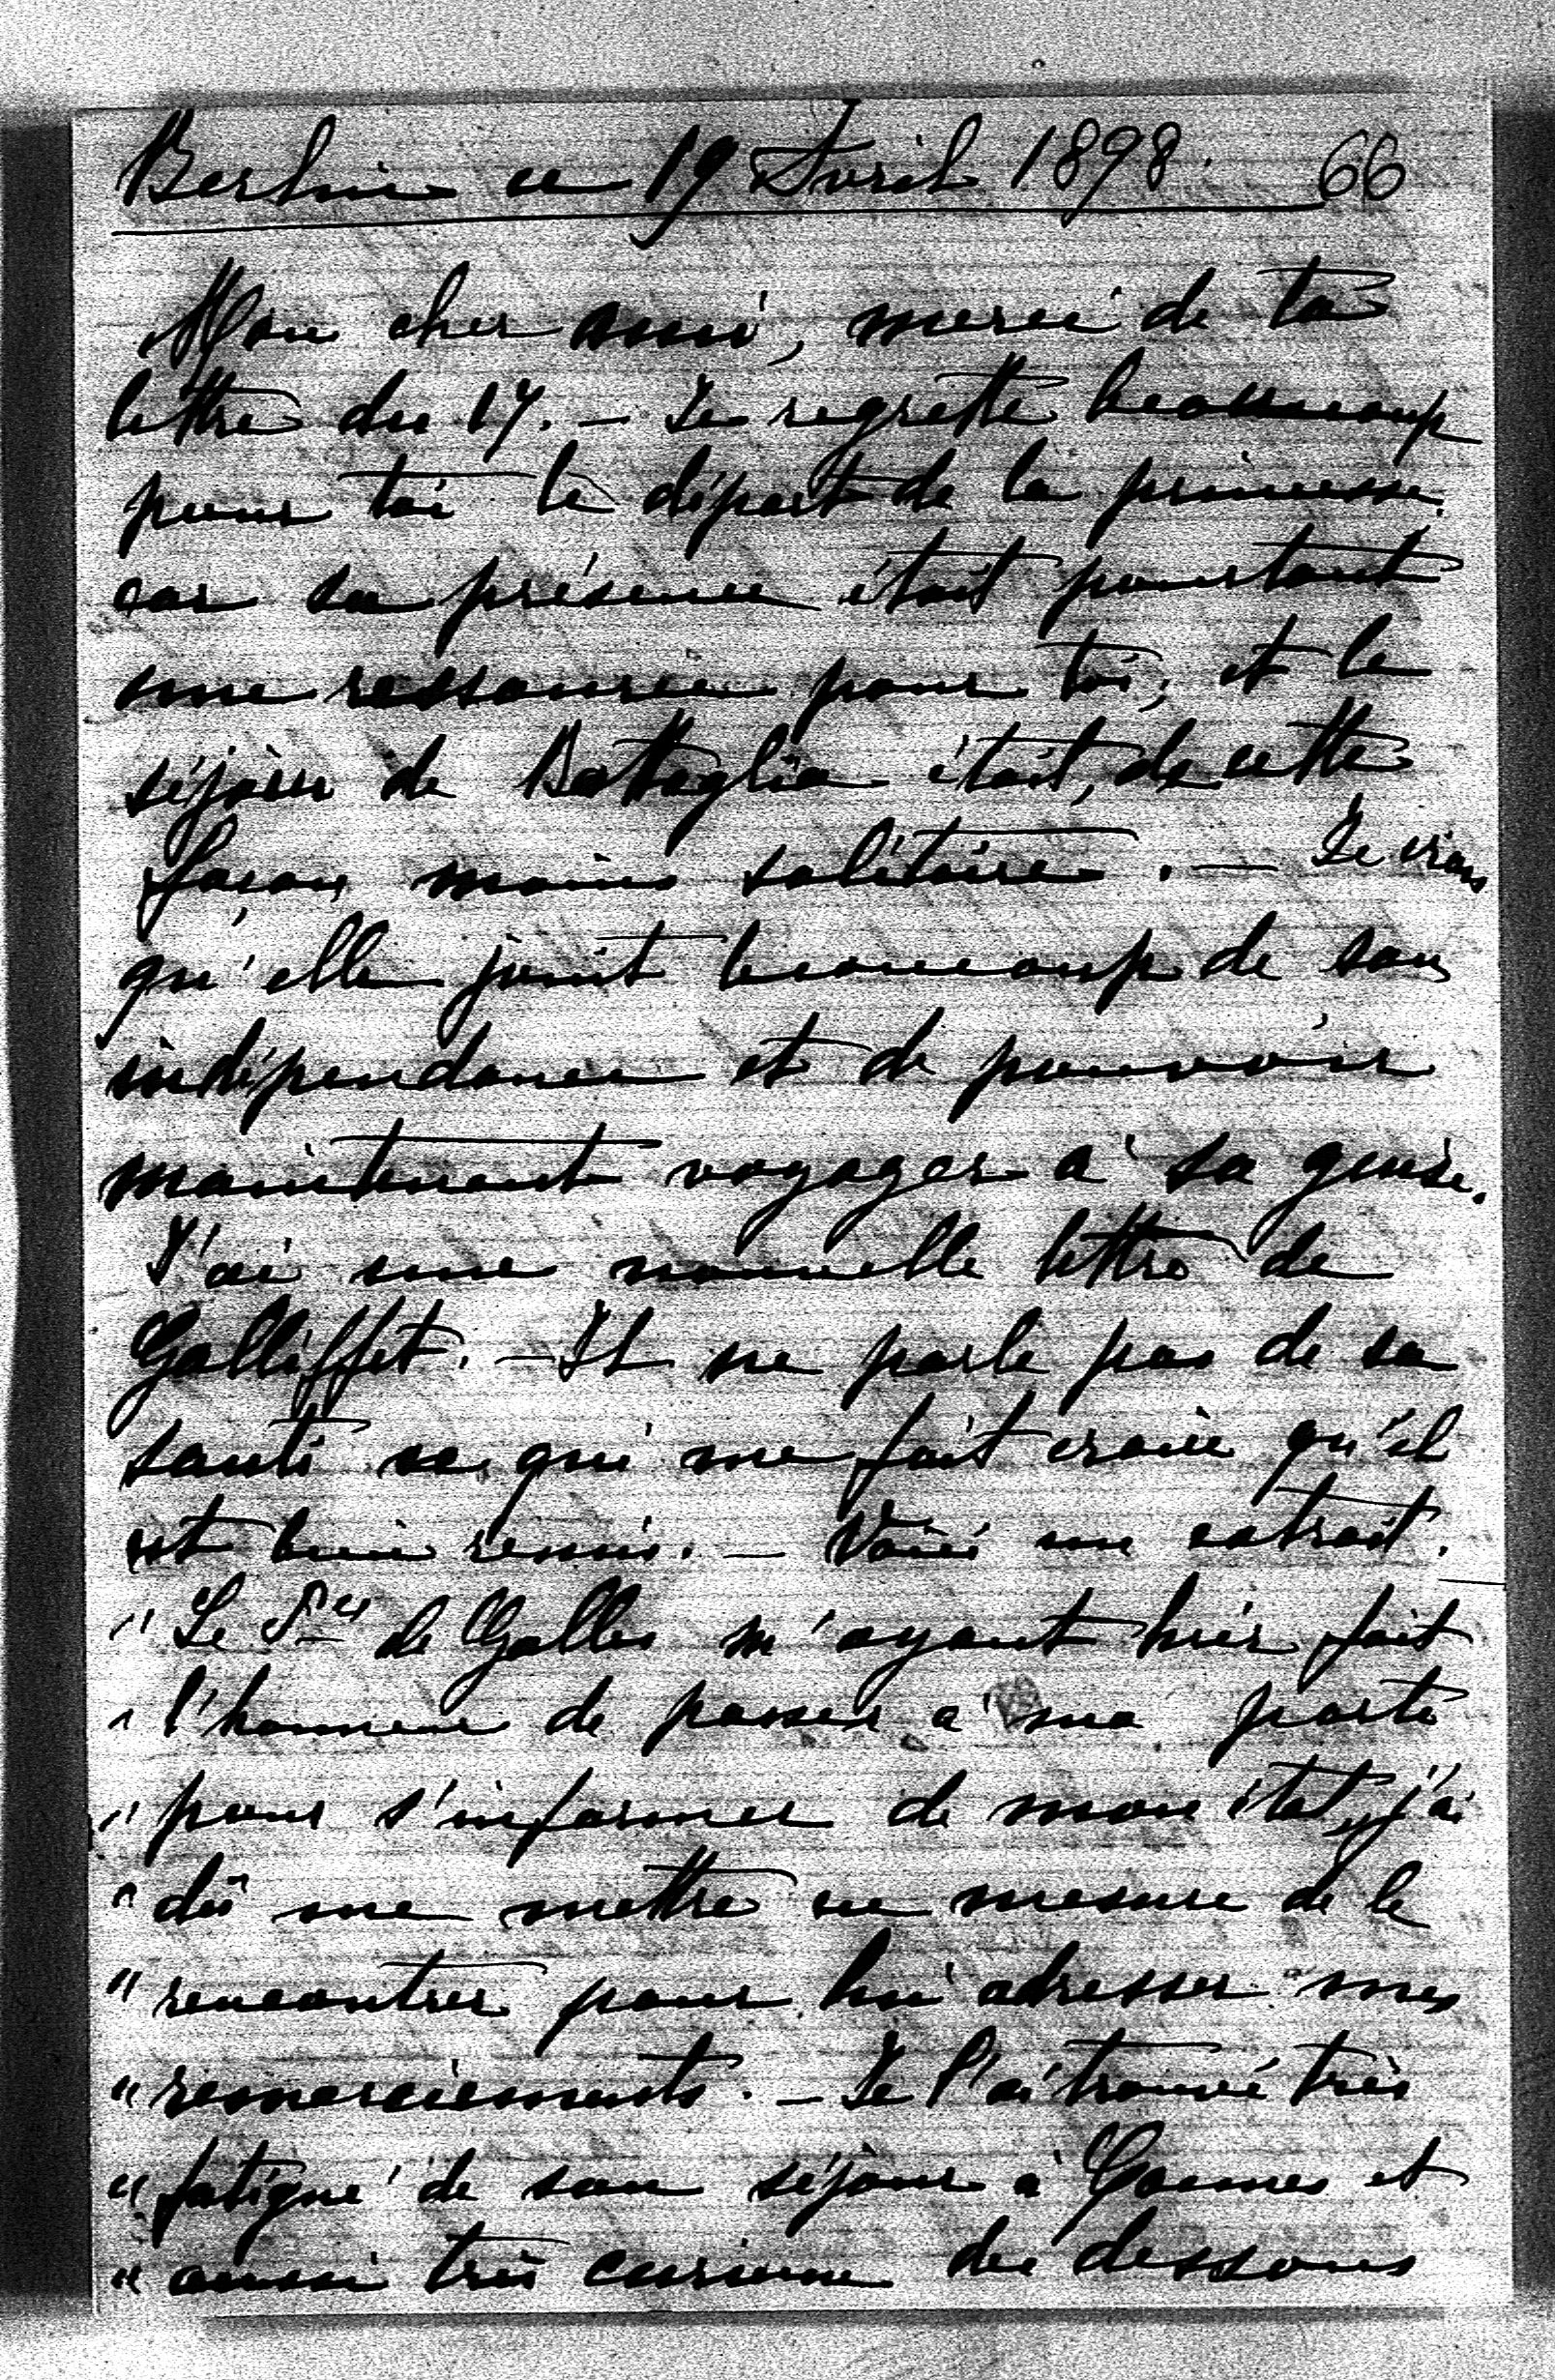 Berlin ce 19 Avril 1898. 66
Mon cher ami, merci de ta
lettre du 17. – Je regrette beaucoup
pour toi le départ de la princesse,
car sa présence était pourtant
une ressource pour toi, et le
séjour de Battaglia était, de cette
façon, moins solitaire. – Je crois
qu'elle jouit beaucoup de son
indépendance et de pouvoir
maintenant voyager à sa guise.
J'ai une nouvelle lettre de
Galliffet. – Il ne parle pas de sa
santé ce qui me fait croire qu'il
est bien remis. – Voici un extrait.
" Le Pce de Galles m'ayant hier fait
" l'honneur de passer à ma porte
" pour s'informer de mon état, j'ai
" dû me mettre en mesure de le
" rencontrer pour lui adresser mes
" remerciements. – Je l'ai trouvé très
" fatigué de son séjour à Cannes et
" aussi très curieux des dessous